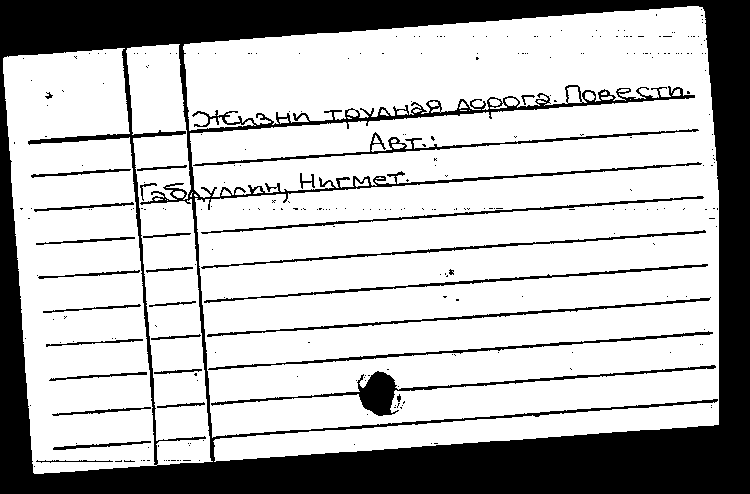 Жизни трудная дорога. Повести.
Авт.:
Габдуллин, Нигмет.